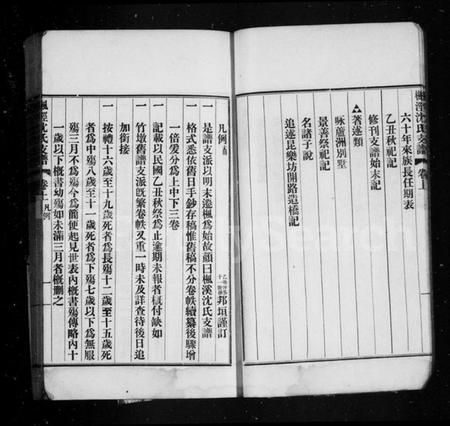 楓涇沈氏支譜 卷上
六十年來族長任期表
乙丑秋祀記
修刊支譜始末記
▲著述類
咏蘆洲別墅
景善祭祀記
名諸子說
追述昆樂坊開路造橋記
凡例
邦垣謹訂
一是譜支派以明末遷楓為始故顏曰楓溪沈氏支譜
一格式悉依舊日手鈔存稿惟舊稿不分卷帙續纂後驟增
一倍爰分為上中下三卷
一記載以民國乙丑秋祭為止逾期未報者槪付缺如
一竹墩舊譜支派旣繁卷帙又重一時未及詳查待後日追
加銜接
一按禮十六歲至十九歲死者為長殤十二歲至十五歲死
者為中殤八歲至十一歲死者為下殤七歲以下為無服
殤三月不為殤今為簡便起見世表內槪書殤傳略內十
一歲以下槪書幼殤如未滿三月者槪刪之
楓涇沈氏支譜 卷上 凡例